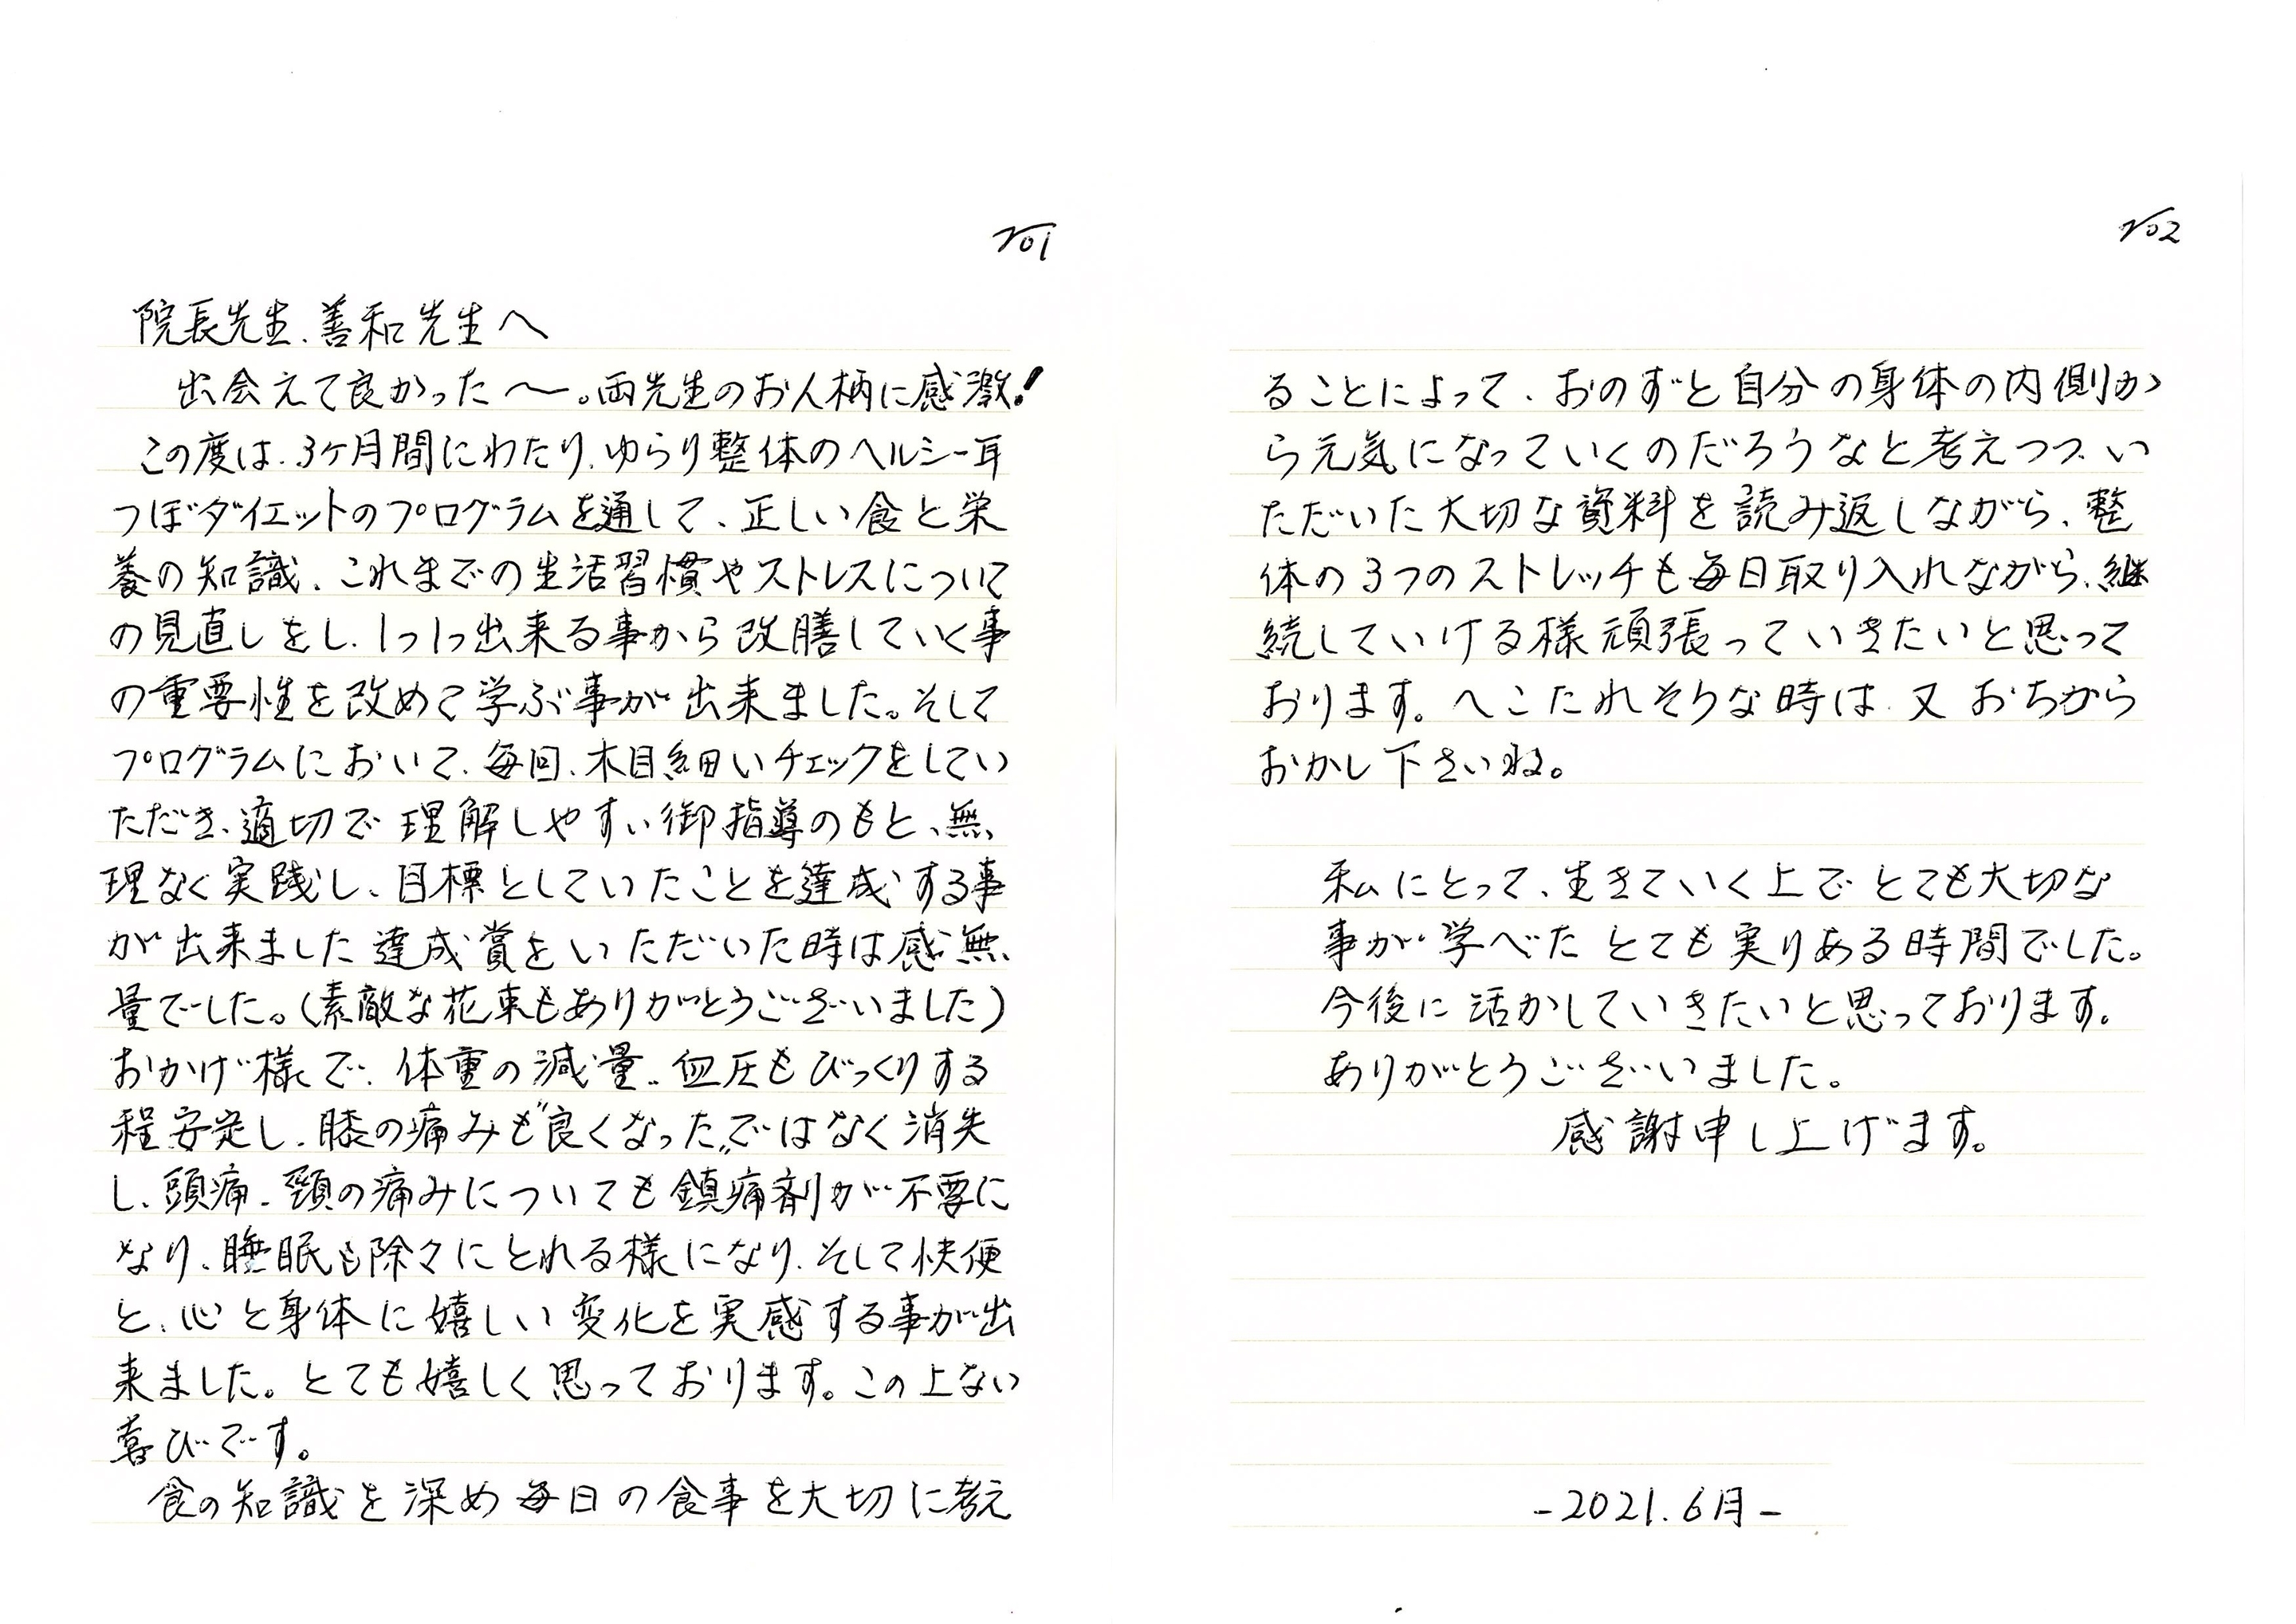 No1
院長先生、善和先生へ
出会えて良かった〜。両先生のお人柄に感激!
この度は、3ヶ月間にわたり、ゆらり整体のヘルシー耳
つぼダイエットのプログラムを通して、正しい食と栄
養の知識、これまでの生活習慣やストレスについて
の見直しをし、1つ1つ出来る事から改膳していく事
の重要性を改めて学ぶ事が出来ました。そして
プログラムにおいて、毎回、木目細いチェックをしてい
ただき、適切で理解しやすい御指導のもと、無
理なく実践し、目標としていたことを達成する事
が出来ました 達成賞をいただいた時は感無
量でした。(素敵な花束もありがとうございました)
おかげ様で、体重の減量、血圧もびっくりする
程安定し、膝の痛みも“良くなった„ではなく消失
し、頭痛、頸の痛みについても鎮痛剤が不要に
なり、睡眠も除々にとれる様になり、そして快便
と、心と身体に嬉しい変化を実感する事が出
来ました。とても嬉しく思っております。この上ない
喜びです。
食の知識を深め毎日の食事を大切に考え
No2
ることによって、おのずと自分の身体の内側か
ら元気になっていくのだろうなと考えつつ、い
ただいた大切な資料を読み返しながら、整
体の3つのストレッチも毎日取り入れながら、継
続していける様頑張っていきたいと思って
おります。へこたれそうな時は、又おちから
おかし下さいね。
私にとって、生きていく上でとても大切な
事が学べた とても実りある時間でした。
今後に活かしていきたいと思っております。
ありがとうございました。
感謝申し上げます。
-2021.6月-